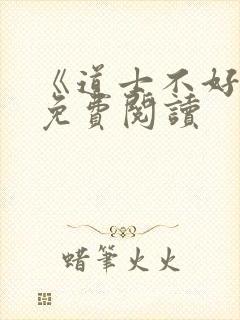 《道士不好
免費閱讀
蜡筆火火